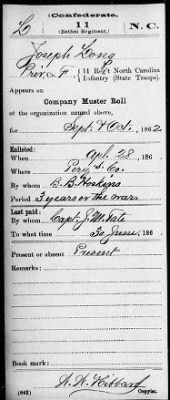 (Confederate.)
L 11 N. C.
(Bethel Regiment.)
Joseph Long
Priv, Co. F, 11 Reg't North Carolina
Infantry (State Troops).
Appears on
Company Muster Roll
of the organization named above,
for Sept & Oct, 1862.
Enlisted:
When Apl. 28, 186 .
Where Co.
By whom B. B. Hoskins
Period 3 years or the war.
Last paid:
By whom Capt. J. M. Tate
To what time 30 June, 186 .
Present or absent Present
Remarks:
Book mark:
(642) Copyist.